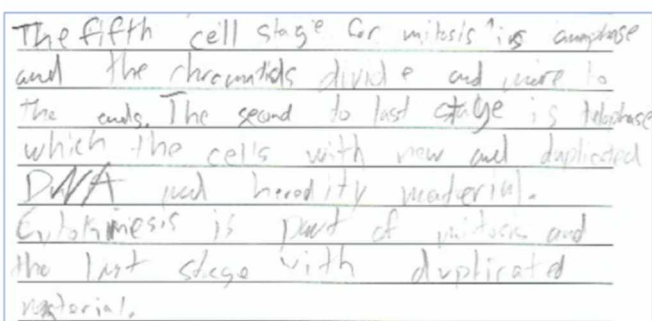 The fifth cell stage for mitosis is anaphase
and the chromatids divide and move to
the ends. The second to last stage is telophase
which the cells with new and duplicated
DNA and heredity material.
Cytokinesis is part of mitosis and
the last stage with duplicated
material.